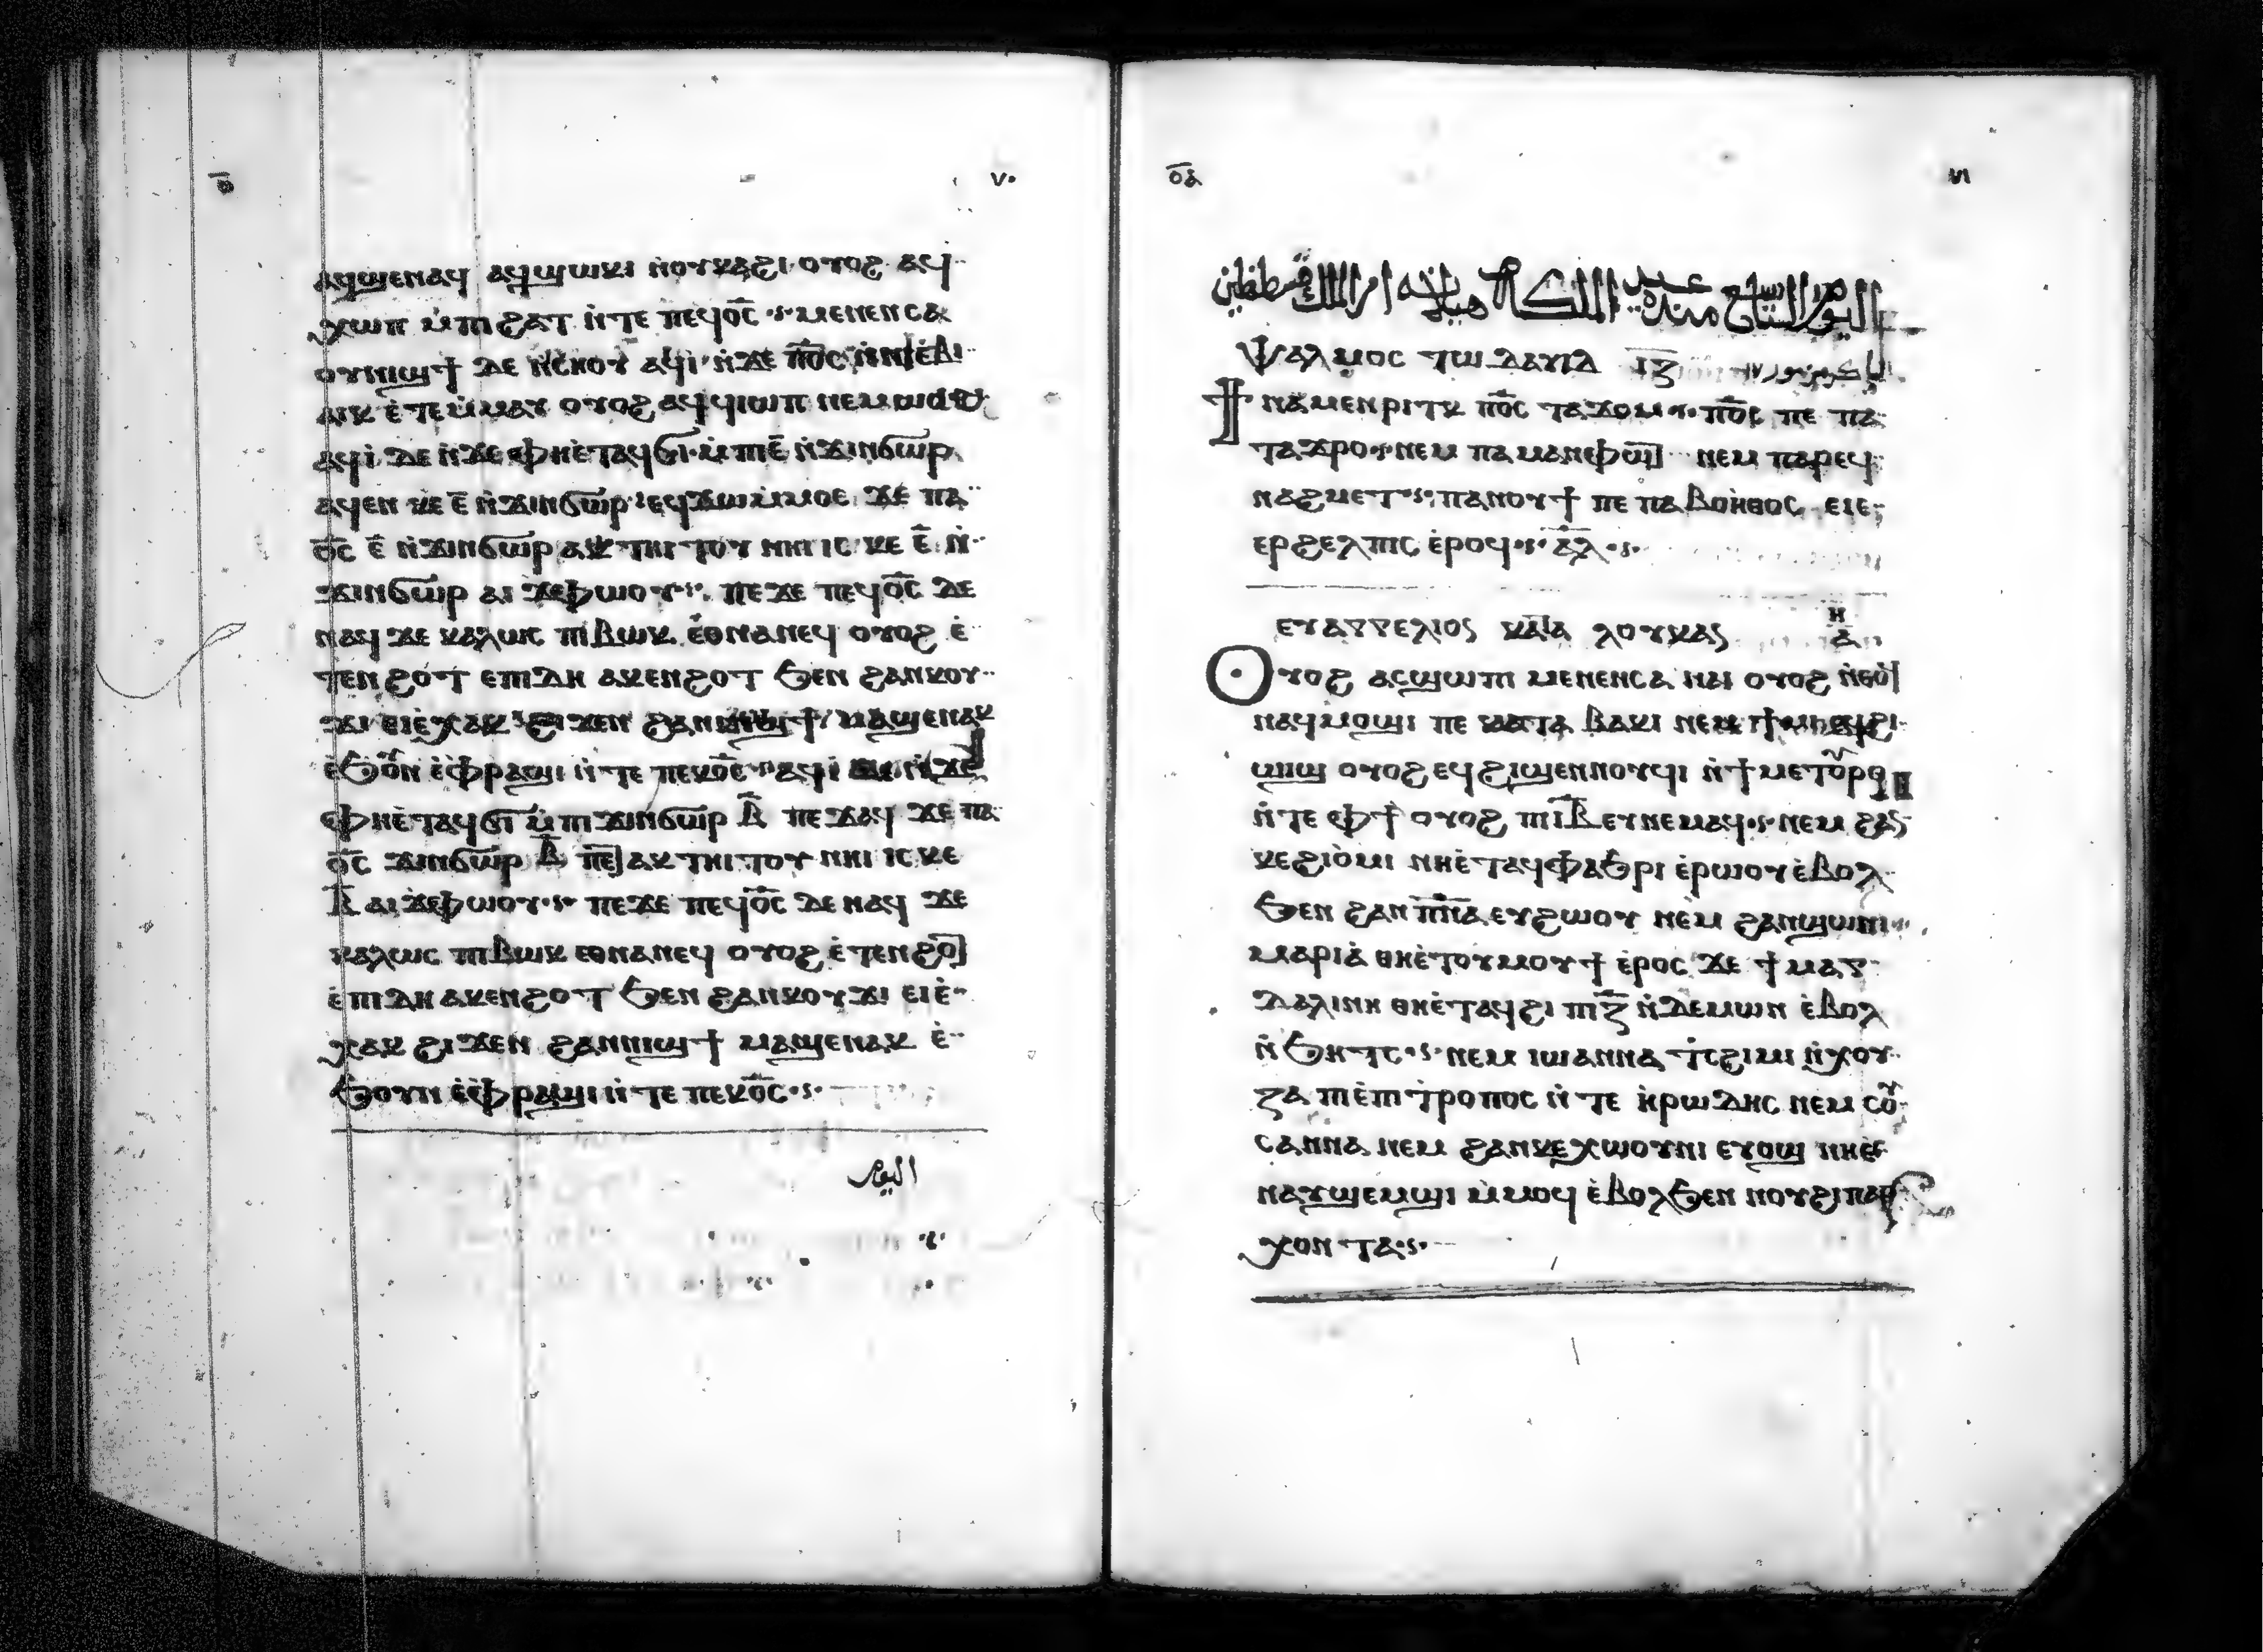 ⲟ̅ ٧٠
ⲁϥϣⲉⲛⲁϥ ⲁϥϣⲱⲕⲓ ⲛ̀ⲟⲩⲕⲁϩⲓ ⲟⲩⲟϩ ⲁϥ
ⲭⲱⲡ ⲙ̀ⲡⲓϩⲁⲧ ⲛ̀ⲧⲉ ⲡⲉϥⲟ̅ⲥ̅ ⲙⲉⲛⲉⲛⲥⲁ
ⲟⲩⲛⲓϣϯ ⲇⲉ ⲛ̀ⲥⲏⲟⲩ ⲁϥⲓ̀ ⲛ̀ϫⲉ ⲡ̅ⲟ̅ⲥ̅ ⲛ̀ⲛⲓⲉ̀ⲃⲓ
ⲁⲓⲕ ⲉ̀ⲧⲉⲙ̀ⲙⲁⲩ ⲟⲩⲟϩ ⲁϥϥⲓⲱⲡ ⲛⲉⲙⲱⲟⲩ
ⲁϥⲓ̀ ⲇⲉ ⲛ̀ϫⲉ ⲫⲏⲉ̀ⲧⲁϥϭⲓ ⲙ̀ⲡⲓⲉ̅ ⲛ̀ϫⲓⲛϭⲱⲣ
ⲁϥⲉⲛ ⲕⲉ ⲉ̅ ⲛ̀ϫⲓⲛϭⲱⲣ ⲉϥϫⲱ ⲙ̀ⲙⲟⲥ ϫⲉ ⲡⲁ
ⲟ̅ⲥ̅ ⲉ̅ ⲛ̀ϫⲓⲛϭⲱⲣ ⲁⲕⲧⲏⲓⲧⲟⲩ ⲛⲏⲓ ⲓⲥ ⲕⲉ ⲉ̅ ⲛ̀
ϫⲓⲛϭⲱⲣ ⲁⲓ ϫⲉⲫⲱⲟⲩ ⲡⲉϫⲉ ⲡⲉϥⲟ̅ⲥ̅ ⲇⲉ
ⲛⲁϥ ϫⲉ ⲕⲁⲗⲱⲥ ⲡⲓⲃⲱⲕ ⲉ̀ⲑⲛⲁⲛⲉϥ ⲟⲩⲟϩ ⲉ̀
ⲧⲉⲛϩⲟⲧ ⲉⲡⲓⲇⲏ ⲁⲕⲉⲛϩⲟⲧ ϧⲉⲛ ϩⲁⲛⲕⲟⲩ
ϫⲓ ⲉⲓⲉ̀ⲭⲁⲕ ϩⲓϫⲉⲛ ϩⲁⲛⲛⲓϣϯ ⲙⲁϣⲉⲛⲁⲕ
ⲉ̀ϧⲟⲩⲛ ⲉ̀ⲫⲣⲁϣⲓ ⲛ̀ⲧⲉ ⲡⲉⲕⲟ̅ⲥ̅ ⲁϥⲓ̀ ⲛ̀ϫⲉ
ⲫⲏⲉ̀ⲧⲁϥϭⲓ ⲙ̀ⲡⲓϫⲓⲛϭⲱⲣ ⲃ̅ ⲡⲉϫⲁϥ ϫⲉ ⲡⲁ
ⲟ̅ⲥ̅ ϫⲓⲛϭⲱⲣ ⲃ̅ ⲡⲉⲧ ⲁⲕⲧⲏⲓⲧⲟⲩ ⲛⲏⲓ ⲓⲥ ⲕⲉ
ⲃ̅ ⲁⲓ ϫⲉⲫⲱⲟⲩ ⲡⲉϫⲉ ⲡⲉϥⲟ̅ⲥ̅ ⲇⲉ ⲛⲁϥ ϫⲉ
ⲕⲁⲗⲱⲥ ⲡⲓⲃⲱⲕ ⲉⲑⲛⲁⲛⲉϥ ⲟⲩⲟϩ ⲉ̀ⲧⲉⲛϩⲟⲧ
ⲉ̀ⲡⲓⲇⲏ ⲁⲕⲉⲛϩⲟⲧ ϧⲉⲛ ϩⲁⲛⲕⲟⲩϫⲓ ⲉⲓⲉ̀
ⲭⲁⲕ ϩⲓϫⲉⲛ ϩⲁⲛⲛⲓϣϯ ⲙⲁϣⲉⲛⲁⲕ ⲉ̀
ϧⲟⲩⲛ ⲉ̀ⲫⲣⲁϣⲓ ⲛ̀ⲧⲉ ⲡⲉⲕⲟ̅ⲥ̅
اليوم
ⲟ̅ⲁ̅ ٧١
اليوم التاسع منه عيد الملكة هيلانه ام الملك قسطنطين
ⲯⲁⲗⲙⲟⲥ ⲧⲱ ⲇⲁⲩⲓⲇ ⲓ̅ⲍ̅
ϯⲛⲁⲙⲉⲛⲣⲓⲧⲕ ⲡ̅ⲟ̅ⲥ̅ ⲧⲁϫⲟⲙ ⲡ̅ⲟ̅ⲥ̅ ⲡⲉ ⲡⲁ
ⲧⲁϫⲣⲟ ⲛⲉⲙ ⲡⲁⲙⲁⲛⲫⲱⲧ ⲛⲉⲙ ⲡⲁⲣⲉϥ
ⲛⲁϩⲙⲉⲧ ⲡⲁⲛⲟⲩϯ ⲡⲉ ⲡⲁⲃⲟⲏⲑⲟⲥ ⲉⲓⲉ
ⲉⲣϩⲉⲗⲡⲓⲥ ⲉ̀ⲣⲟϥ ⲁ̅ⲗ̅
ⲉⲩⲁⲅⲅⲉⲗⲓⲟⲥ ⲕⲁⲧⲁ ⲗⲟⲩⲕⲁⲥ ⲏ ⲁ̅
ⲟⲩⲟϩ ⲁⲥϣⲱⲡⲓ ⲙⲉⲛⲉⲛⲥⲁ ⲛⲁⲓ ⲟⲩⲟϩ ⲛ̀ⲑⲟϥ
ⲛⲁϥⲙⲟϣⲓ ⲡⲉ ⲕⲁⲧⲁ ⲃⲁⲕⲓ ⲛⲉⲙ ϯⲙⲓ ⲉϥϩⲓ
ⲱⲓϣ ⲟⲩⲟϩ ⲉϥϩⲓϣⲉⲛⲛⲟⲩϥⲓ ⲛ̀ϯⲙⲉⲧⲟⲩⲣⲟ
ⲛ̀ⲧⲉ ⲫϯ ⲟⲩⲟϩ ⲡⲓⲓ̅ⲃ̅ ⲉⲩⲛⲉⲙⲁϥ ⲛⲉⲙ ϩⲁⲛ
ⲕⲉϩⲓⲟ̀ⲙⲓ ⲛⲏⲉ̀ⲧⲁϥⲫⲁϧⲣⲓ ⲉ̀ⲣⲱⲟⲩ ⲉ̀ⲃⲟⲗ
ϧⲉⲛ ϩⲁⲛⲡ̅ⲛ̅ⲁ̅ ⲉⲩϩⲱⲟⲩ ⲛⲉⲙ ϩⲁⲛϣⲱⲛⲓ
ⲙⲁⲣⲓⲁ̀ ⲑⲏⲉ̀ⲧⲟⲩⲙⲟⲩϯ ⲉ̀ⲣⲟⲥ ϫⲉ ϯⲙⲁⲅ
ⲇⲁⲗⲓⲛⲏ ⲑⲏⲉ̀ⲧⲁϥϩⲓ ⲡⲓⲍ̅ ⲛ̀ⲇⲉⲙⲱⲛ ⲉ̀ⲃⲟⲗ
ⲛ̀ϧⲏⲧⲥ ⲛⲉⲙ ⲓⲱⲁⲛⲛⲁ ⲧ̀ⲥϩⲓⲙⲓ ⲛ̀ⲭⲟⲩ
ⲍⲁ ⲡⲓⲉ̀ⲡⲓⲧⲣⲟⲡⲟⲥ ⲛ̀ⲧⲉ ⲏⲣⲱⲇⲏⲥ ⲛⲉⲙ ⲥⲟⲩ
ⲥⲁⲛⲛⲁ ⲛⲉⲙ ϩⲁⲛⲕⲉⲭⲱⲟⲩⲛⲓ ⲉⲩⲟϣ ⲛⲏⲉ̀
ⲛⲁⲩϣⲉⲙϣⲓ ⲙ̀ⲙⲟϥ ⲉ̀ⲃⲟⲗϧⲉⲛ ⲛⲟⲩϩⲓⲡⲁⲣ
ⲭⲟⲛⲧⲁ